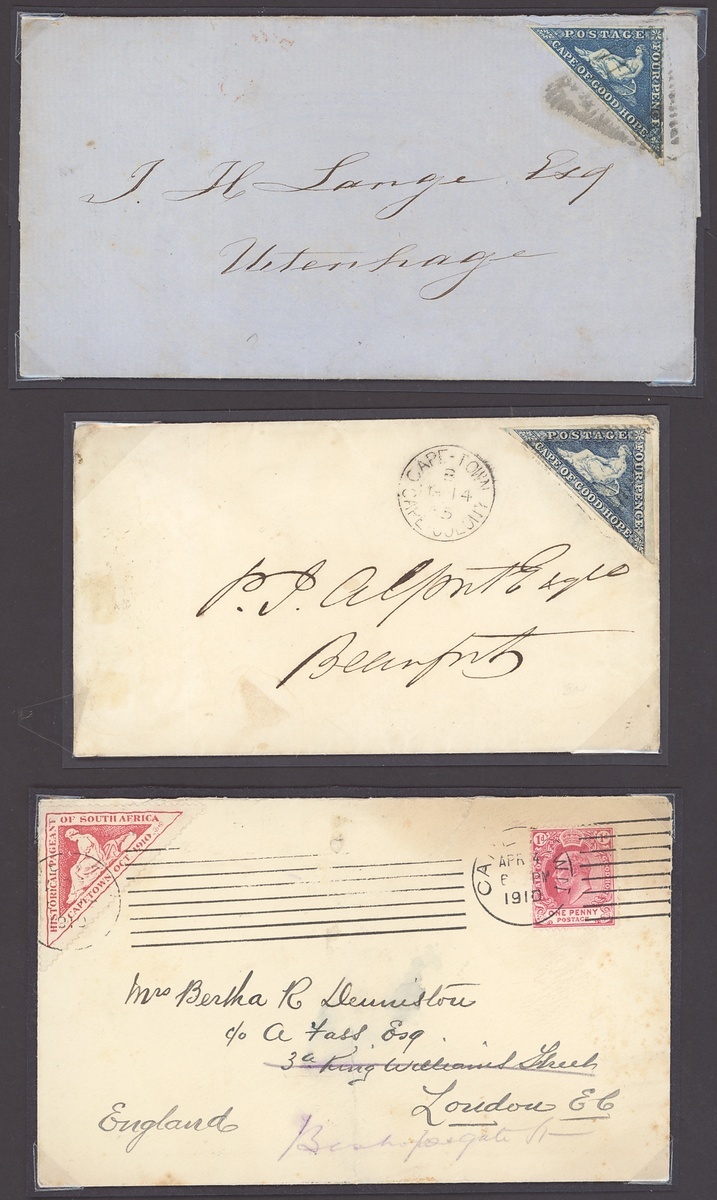 POSTAGE
CAPE OF GOOD HOPE
FOUR PENCE
J. H Lange Esq
Uitenhage
POSTAGE
CAPE OF GOOD HOPE
FOUR PENCE
CAPE-TOWN
B
14
5
CAPE COLONY
P. J. Alport Esqre
Beaufort
HISTORICAL PAGEANT
OF SOUTH AFRICA
CAPETOWN OCT 1910
CA
APR 4
6 PM
1910
1d
ONE PENNY
POSTAGE
Mrs Bertha R Denniston
c/o A Fass, Esq.
3a King Williams Street
London EC
England
Bishopsgate St